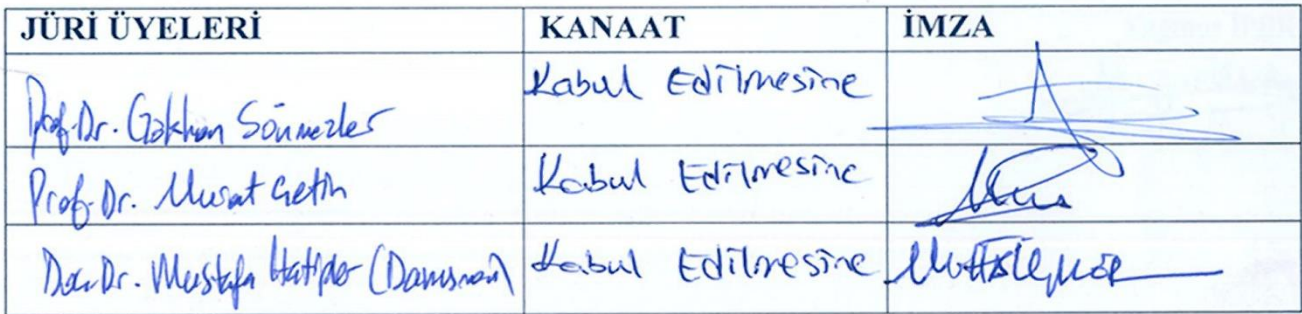 JÜRİ ÜYELERİ KANAAT İMZA
Prof. Dr. Gökhan Sönmezler Kabul Edilmesine
Prof. Dr. Murat Çetin Kabul Edilmesine
Doç. Dr. Mustafa Hatipler (Danışman) Kabul Edilmesine